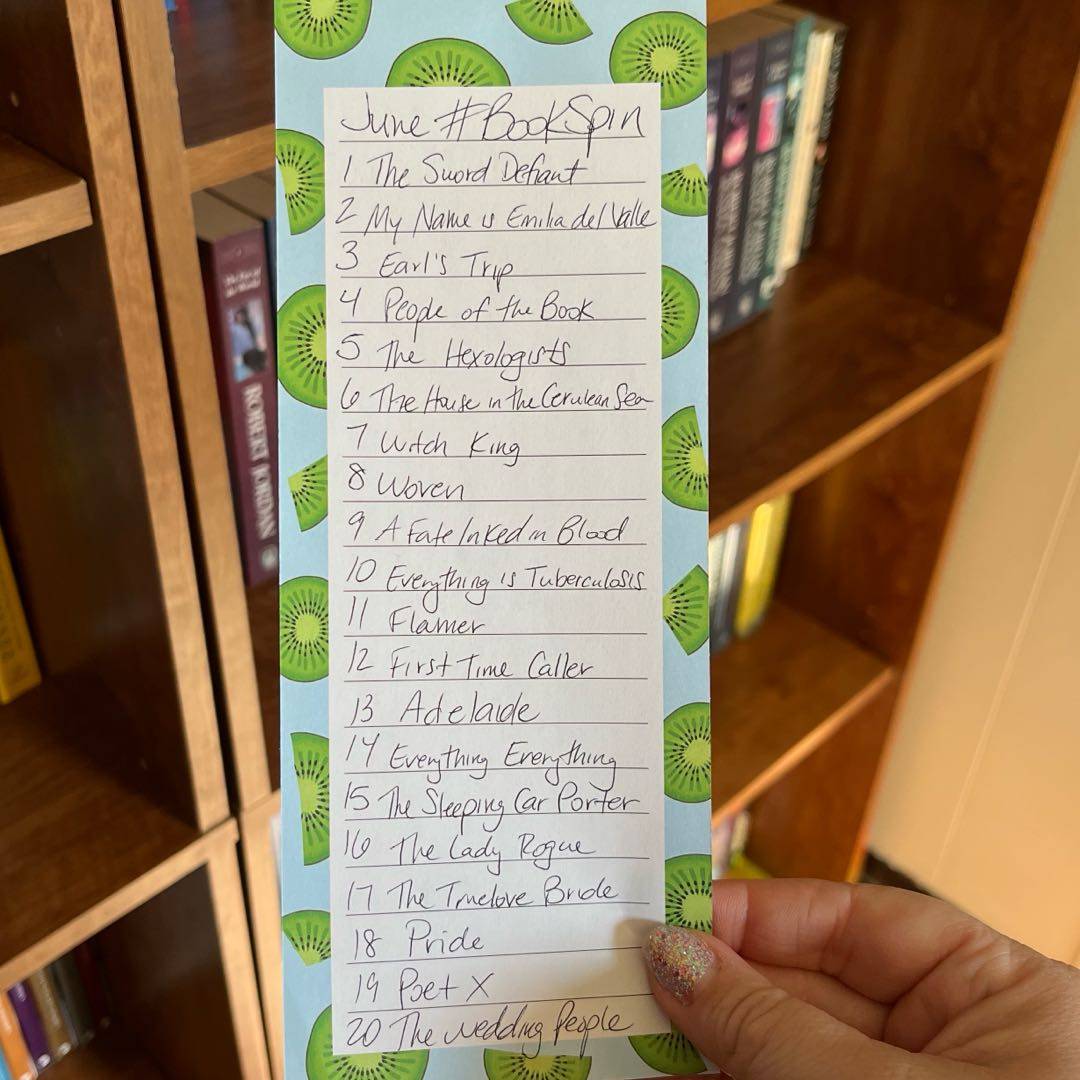 June #BookSpin
1 The Sword Defiant
2 My Name is Emilia del Valle
3 Earl's Trip
4 People of the Book
5 The Hexologists
6 The House in the Cerulean Sea
7 Witch King
8 Woven
9 A Fate Inked in Blood
10 Everything is Tuberculosis
11 Flamer
12 First Time Caller
13 Adelaide
14 Everything Everything
15 The Sleeping Car Porter
16 The Lady Rogue
17 The Truelove Bride
18 Pride
19 Poet X
20 The Wedding People
ROBERT JORDAN